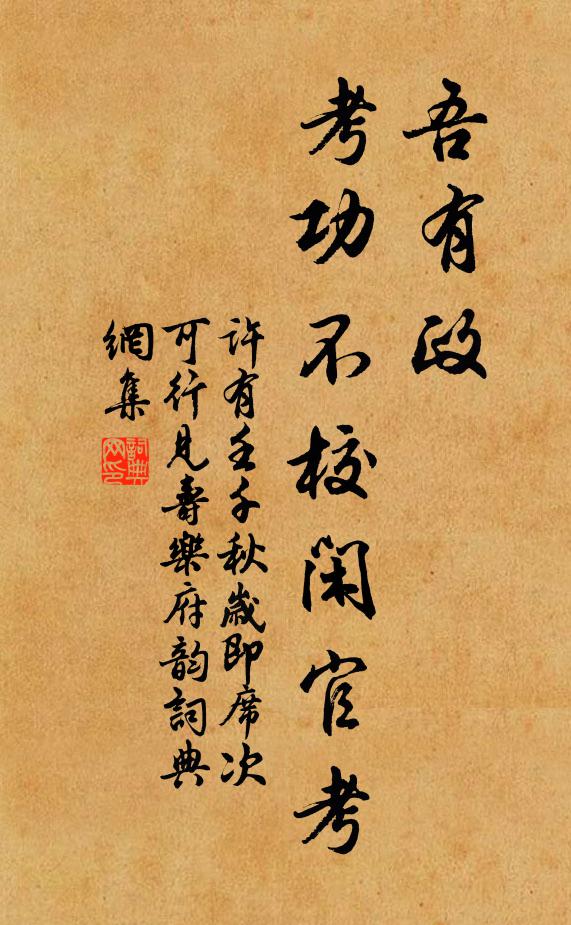 吾有政
考功不校閑官考
許有壬千秋歲即席次
可行見壽樂府韵詞典
網集
詞典
网印